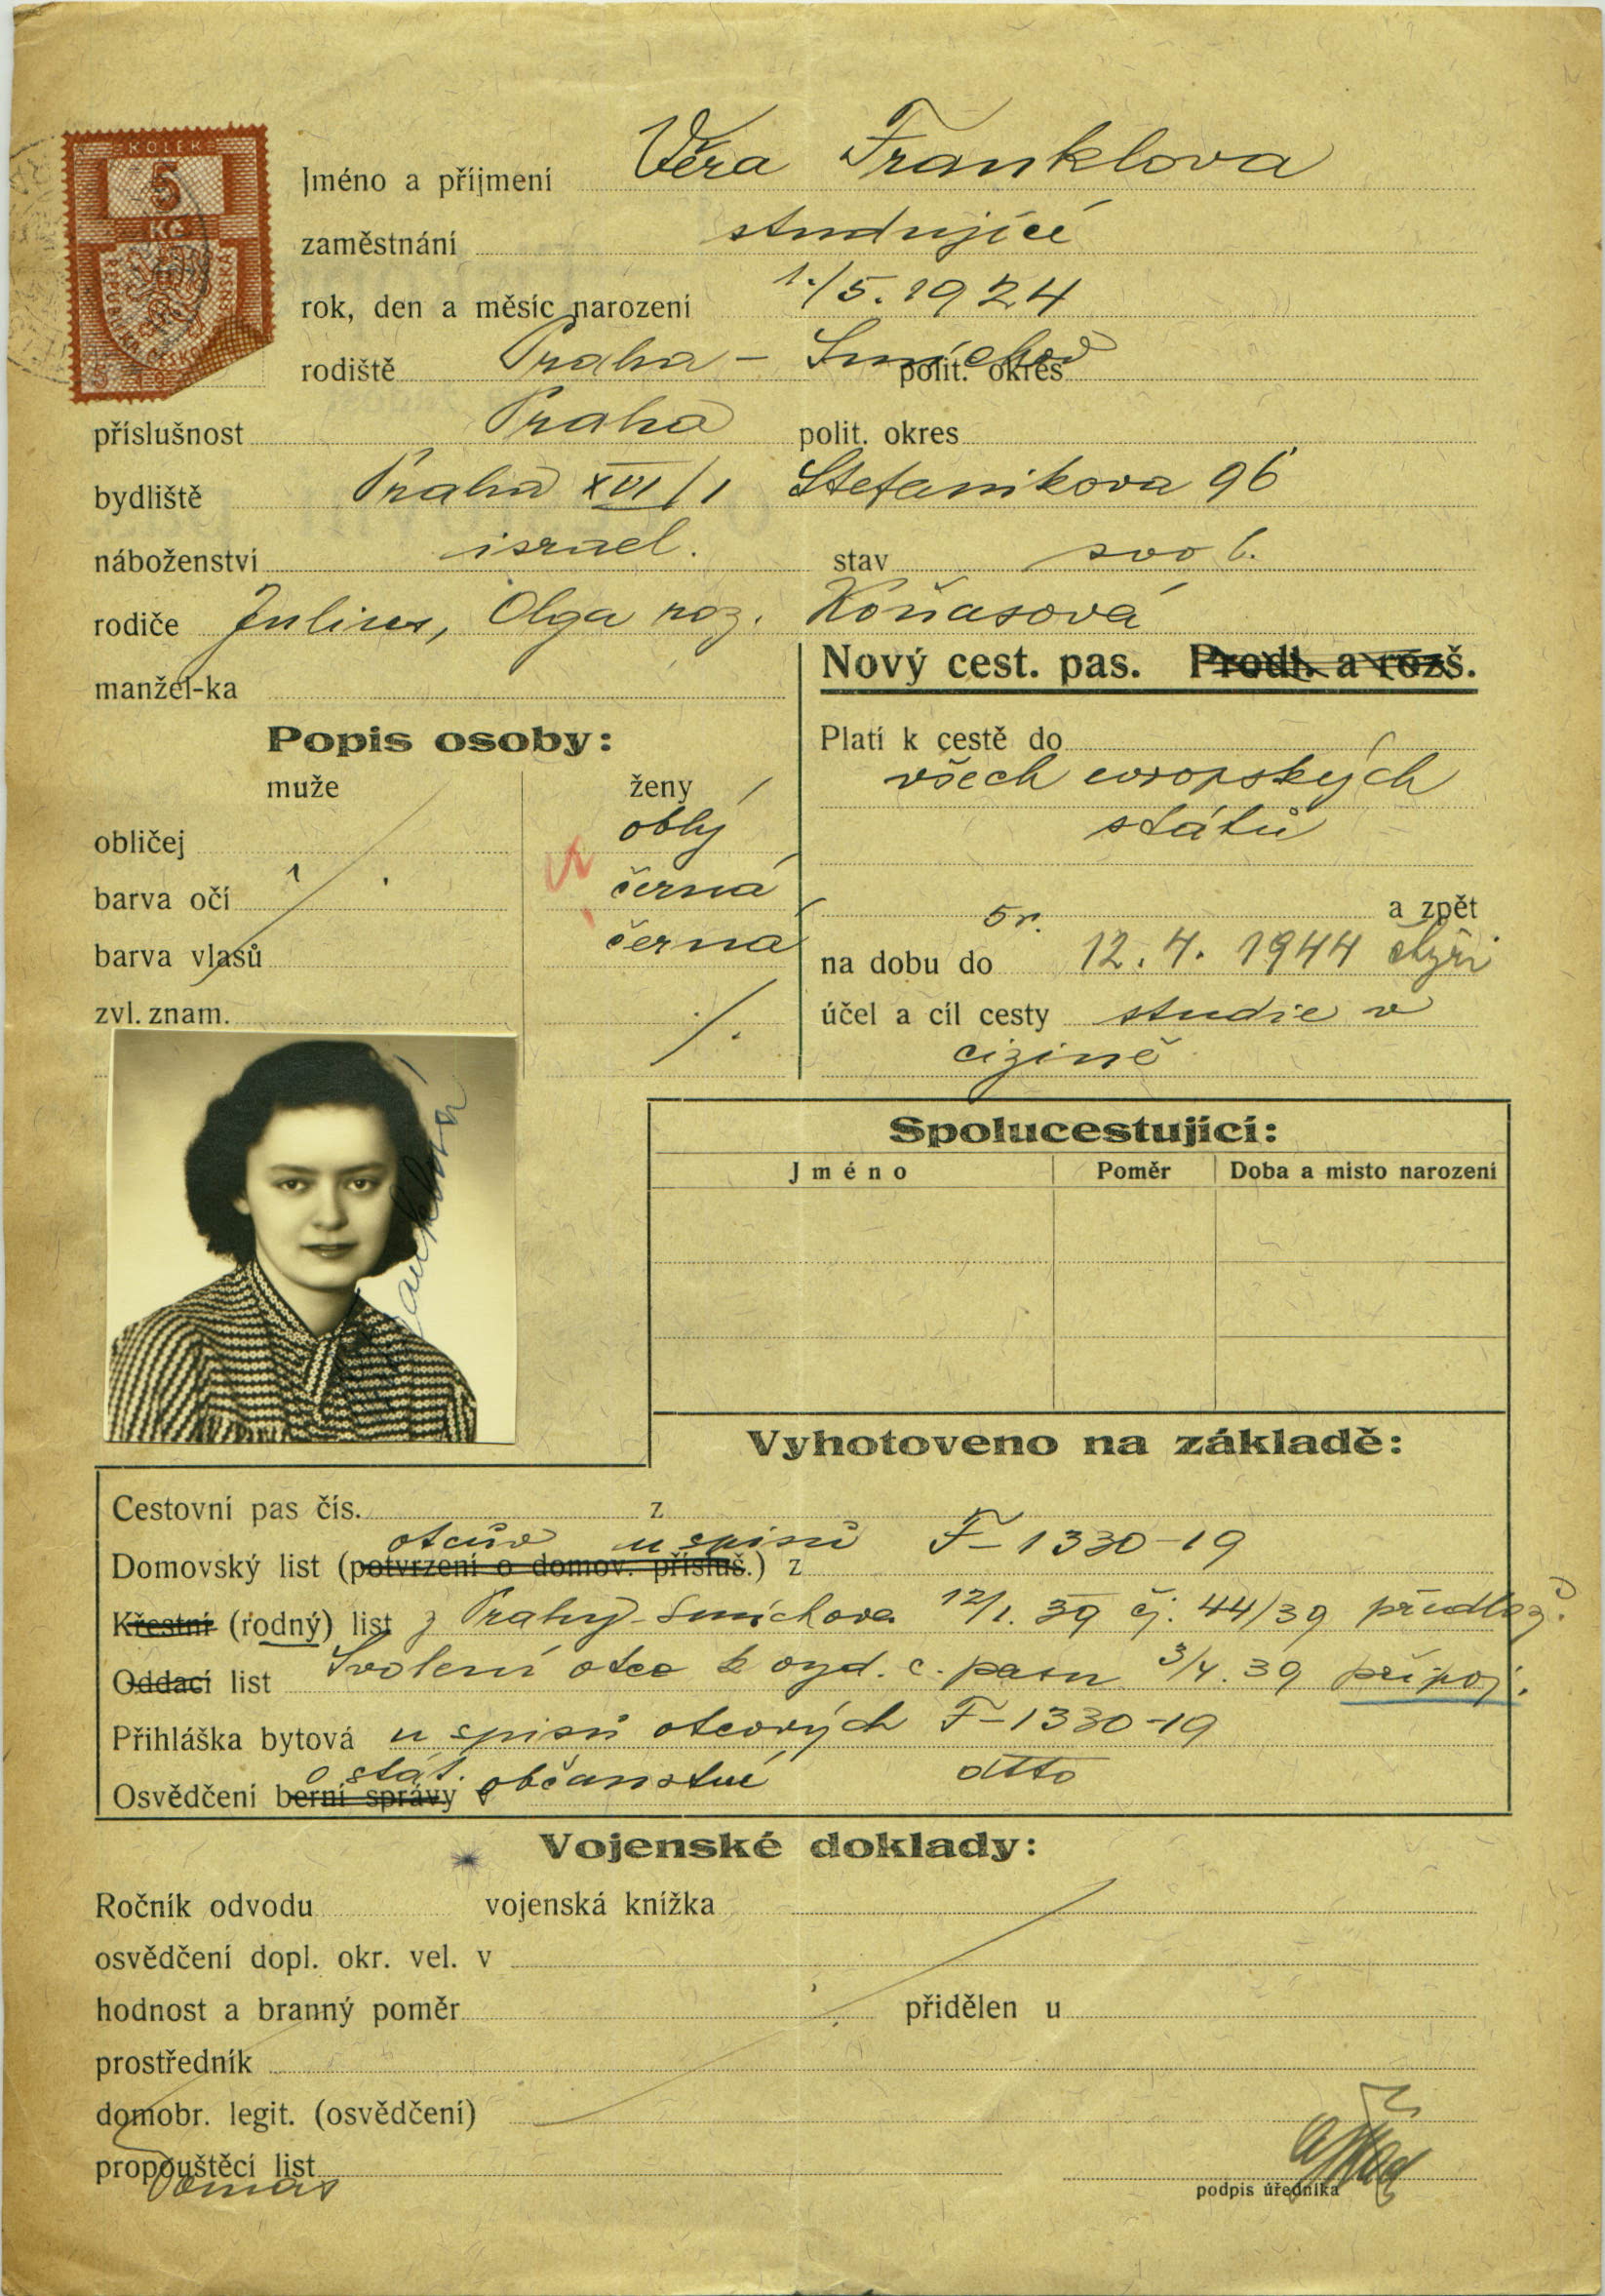 KOLEK
5
Kč
Jméno a příjmení Věra Franklova
zaměstnání studující
rok, den a měsíc narození 1./5. 1924
rodiště Praha - Smíchov polit. okres
příslušnost Praha polit. okres
bydliště Praha XVI/1 Stefanikova 96
náboženství israel. stav svob.
rodiče Julius, Olga roz. Koňasová
manžel-ka
Nový cest. pas. Prodl. a rozš.
Popis osoby:
muže ženy
obličej oblý
barva očí černá
barva vlasů černá
zvl. znam. ./.
Platí k cestě do
všech evropských
států
a zpět
5 r.
na dobu do 12. 4. 1944 čtyři
účel a cíl cesty studie v
cizině
Franklová
Spolucestující:
Jméno Poměr Doba a místo narození
Vyhotoveno na základě:
Cestovní pas čís. z
otcův u spisů F-1330-19
Domovský list (potvrzení o domov. přísluš.) z
Křestní (rodný) list z Prahy-Smíchova 12/1. 39 čj. 44/39 předlož.
Oddací list Svolení otce k vyd. c. pasu 3/4. 39 připoj.
Přihláška bytová u spisů otcových F-1330-19
o stát. občanství dtto
Osvědčení berní správy v
Vojenské doklady:
Ročník odvodu vojenská knížka
osvědčení dopl. okr. vel. v
hodnost a branný poměr přidělen u
prostředník
domobr. legit. (osvědčení)
propouštěcí list
podpis úředníka